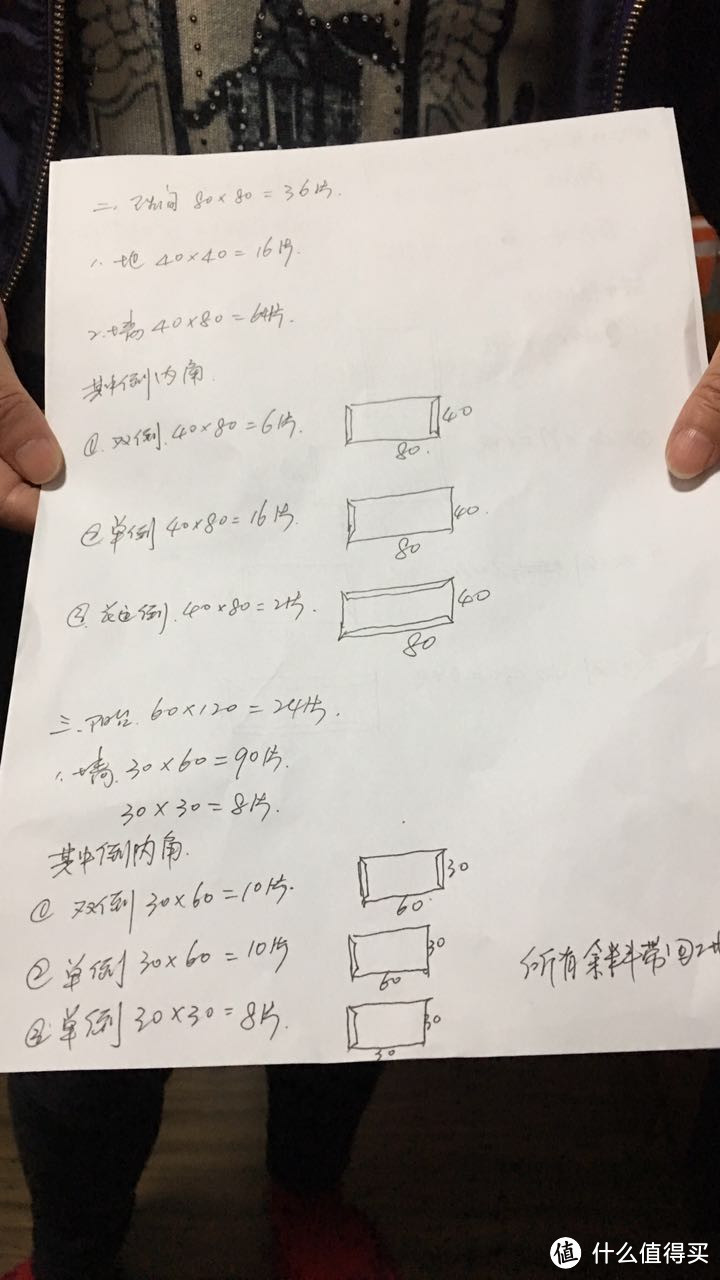 二. 卫生间 80×80=36片.
1. 地 40×40=16片.
2. 墙 40×80=64片.
其中倒内角.
① 双倒. 40×80=6片.
40
80.
② 单倒 40×80=16片.
40.
80
③. 左边倒. 40×80=2片.
40
80
三. 阳台. 60×120=24片.
1. 墙. 30×60=90片.
30×30=8片.
其中倒内角.
① 双倒 30×60=10片.
30
60.
② 单倒 30×60=10片
30
60
所有余料带回工
③ 单倒 30×30=8片.
30
30
值 什么值得买